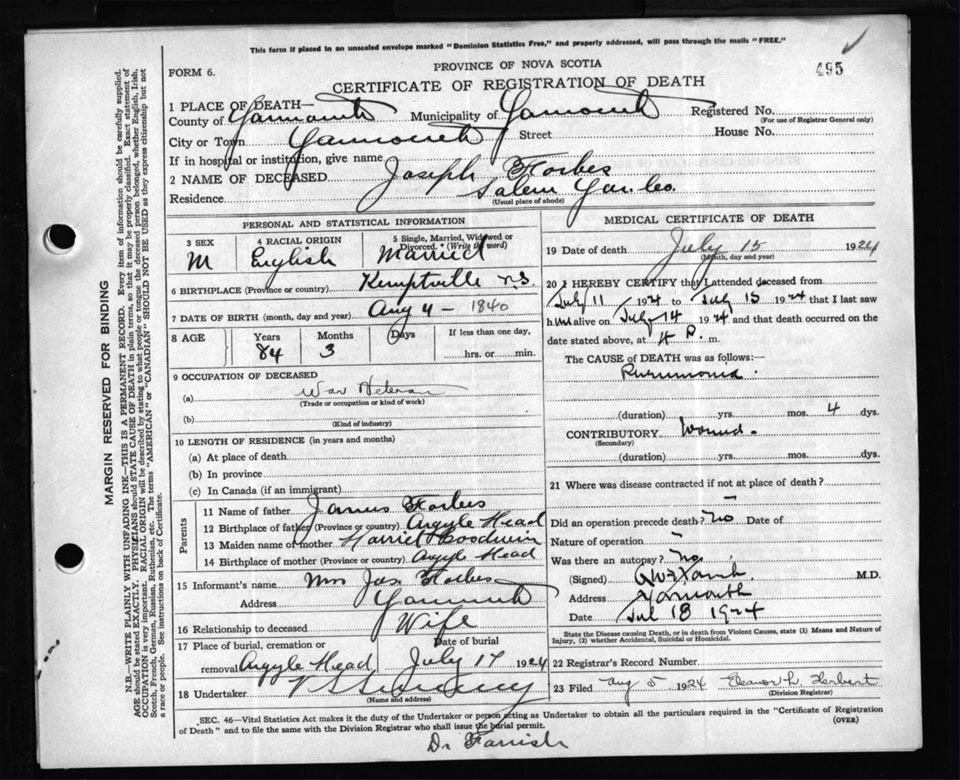 This form if placed in an unsealed envelope marked "Dominion Statistics Free," and properly addressed, will pass through the mails "FREE."
PROVINCE OF NOVA SCOTIA
FORM 6.
CERTIFICATE OF REGISTRATION OF DEATH
495
1 PLACE OF DEATH—
County of Yarmouth Municipality of Yarmouth Registered No.
(For use of Registrar General only)
City or Town Yarmouth Street House No.
If in hospital or institution, give name
2 NAME OF DECEASED Joseph Forbes
Residence Salem Yar. Co.
(Usual place of abode)
PERSONAL AND STATISTICAL INFORMATION
3 SEX
M
4 RACIAL ORIGIN
English
5 Single, Married, Widowed or Divorced. (Write the word)
Married
6 BIRTHPLACE (Province or country) Kemptville N.S.
7 DATE OF BIRTH (month, day and year) Aug 4 - 1840
8 AGE
Years
84
Months
3
Days
If less than one day,
hrs. or min.
9 OCCUPATION OF DECEASED
(a) War Veteran
(Trade or occupation or kind of work)
(b)
(Kind of industry)
10 LENGTH OF RESIDENCE (in years and months)
(a) At place of death
(b) In province
(c) In Canada (if an immigrant)
Parents
11 Name of father James Forbes
12 Birthplace of father (Province or country) Argyle Head
13 Maiden name of mother Harriet Goodwin
14 Birthplace of mother (Province or country) Argyle Head
15 Informant's name Mrs Jos Forbes
Address Yarmouth
16 Relationship to deceased Wife
17 Place of burial, cremation or removal Argyle Head
Date of burial
July 17 1924
18 Undertaker
(Name and address)
MEDICAL CERTIFICATE OF DEATH
19 Date of death July 15 1924
(Month, day and year)
20 I HEREBY CERTIFY that I attended deceased from
July 11 1924 to July 15 1924 that I last saw
him alive on July 14 1924 and that death occurred on the
date stated above, at P. m.
The CAUSE OF DEATH was as follows:
Pneumonia.
(duration) yrs. mos. 4 dys.
CONTRIBUTORY Wound.
(Secondary)
(duration) yrs. mos. dys.
21 Where was disease contracted if not at place of death?
-
Did an operation precede death? No Date of
Nature of operation -
Was there an autopsy? No
(Signed) M.D.
Address Yarmouth
Date Jul 18 1924
State the Disease causing Death, or in death from Violent Causes, state (1) Means and Nature of
Injury, (2) whether Accidental, Suicidal or Homicidal.
22 Registrar's Record Number
23 Filed Aug 5 1924 Eleanor L. Herbert
(Division Registrar)
SEC. 46—Vital Statistics Act makes it the duty of the Undertaker or person acting as Undertaker to obtain all the particulars required in the "Certificate of Registration
of Death" and to file the same with the Division Registrar who shall issue the burial permit.
(OVER)
Dr Farrish
MARGIN RESERVED FOR BINDING
N.B.—WRITE PLAINLY WITH UNFADING INK—THIS IS A PERMANENT RECORD. Every item of information should be carefully supplied.
AGE should be stated EXACTLY. PHYSICIANS should STATE CAUSE OF DEATH in plain terms, so that it may be properly classified. Exact statement of
OCCUPATION is very important. RACIAL ORIGIN will be described by stating to what people or tongue the deceased person belonged, whether English, Irish,
Scotch, French, German, Russian, Ruthenian, etc. The terms "AMERICAN" or "CANADIAN" SHOULD NOT BE USED as they express citizenship but not
a race or people. See instructions on back of Certificate.